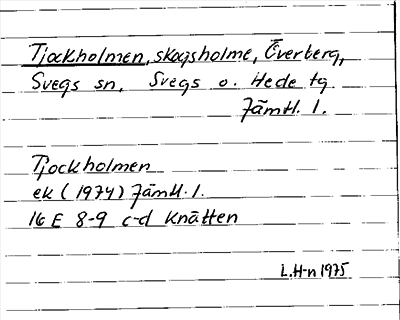 Tjockholmen, skogsholme, Överberg,
Svegs sn, Svegs o. Hede tg.
Jämtl. l.
Tjockholmen
ek (1974) Jämtl. l.
16 E 8-9 c-d Knätten
L.H-n 1975